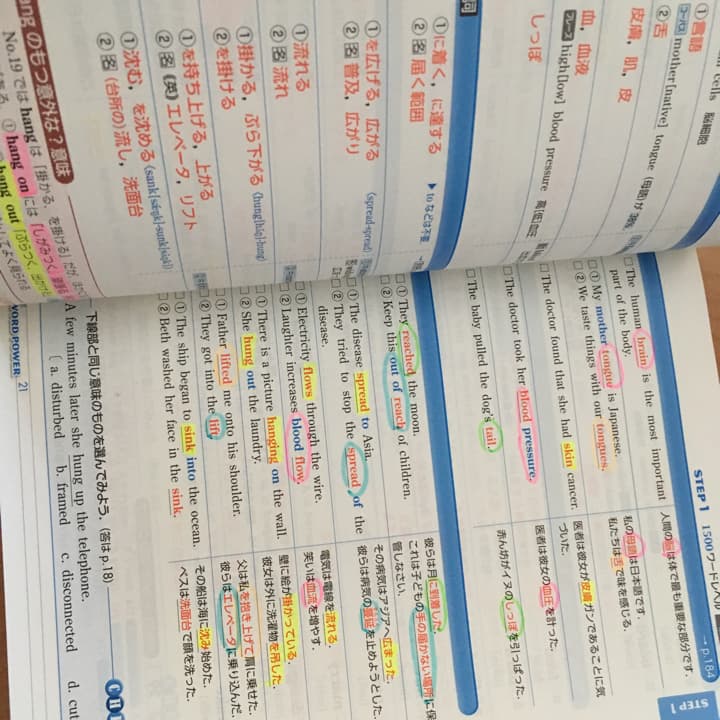 cells 脳細胞
①言語
mother[native] tongue (母語)が
②舌
皮膚,肌,皮
血,血液
フレーズ high[low] blood pressure 高(低)血圧
しっぽ
①に着く,に達する ▶ to などは不要
②名 届く範囲
①を広げる,広がる (spread-spread)
②名 普及,広がり
①流れる
②名 流れ
①掛かる,ぶら下がる (hung[hʌ́ŋ]-hung)
②を掛ける
①を持ち上げる,上がる
②名 (英)エレベータ,リフト
①沈む,を沈める (sank[sǽŋk]-sunk[sʌ́ŋk])
②名 (台所の)流し,洗面台
ang のもつ意外な?意味
No.19 では hang は「掛かる,を掛ける」だが
① hang on には「しがみつく,
hang out「ぶらつく,
STEP 1 1500ワードレベル
→ p.184
STEP 1
□ The human brain is the most important part of the body.
人間の脳は体で最も重要な部分です.
□ ① My mother tongue is Japanese.
私の母語は日本語です.
□ ② We taste things with our tongues.
私たちは舌で味を感じる.
□ The doctor found that she had skin cancer.
医者は彼女が皮膚ガンであることに気づいた.
□ The doctor took her blood pressure.
医者は彼女の血圧を計った.
□ The baby pulled the dog's tail.
赤ん坊がイヌのしっぽを引っぱった.
□ ① They reached the moon.
彼らは月に到着した.
□ ② Keep this out of reach of children.
これは子どもの手の届かない場所に保管しなさい.
□ ① The disease spread to Asia.
その病気はアジアへ広まった.
□ ② They tried to stop the spread of the disease.
彼らは病気の蔓延を止めようとした.
□ ① Electricity flows through the wire.
電気は電線を流れる.
□ ② Laughter increases blood flow.
笑いは血流を増やす.
□ ① There is a picture hanging on the wall.
壁に絵が掛かっている.
□ ② She hung out the laundry.
彼女は外に洗濯物を吊した.
□ ① Father lifted me onto his shoulder.
父は私を抱き上げて肩に乗せた.
□ ② They got into the lift.
彼らはエレベータに乗り込んだ.
□ ① The ship began to sink into the ocean.
その船は海に沈み始めた.
□ ② Beth washed her face in the sink.
ベスは洗面台で顔を洗った.
下線部と同じ意味のものを選んでみよう.(答は p.18)
A few minutes later she hung up the telephone.
( a. disturbed b. framed c. disconnected d. cut
WORD POWER: 21